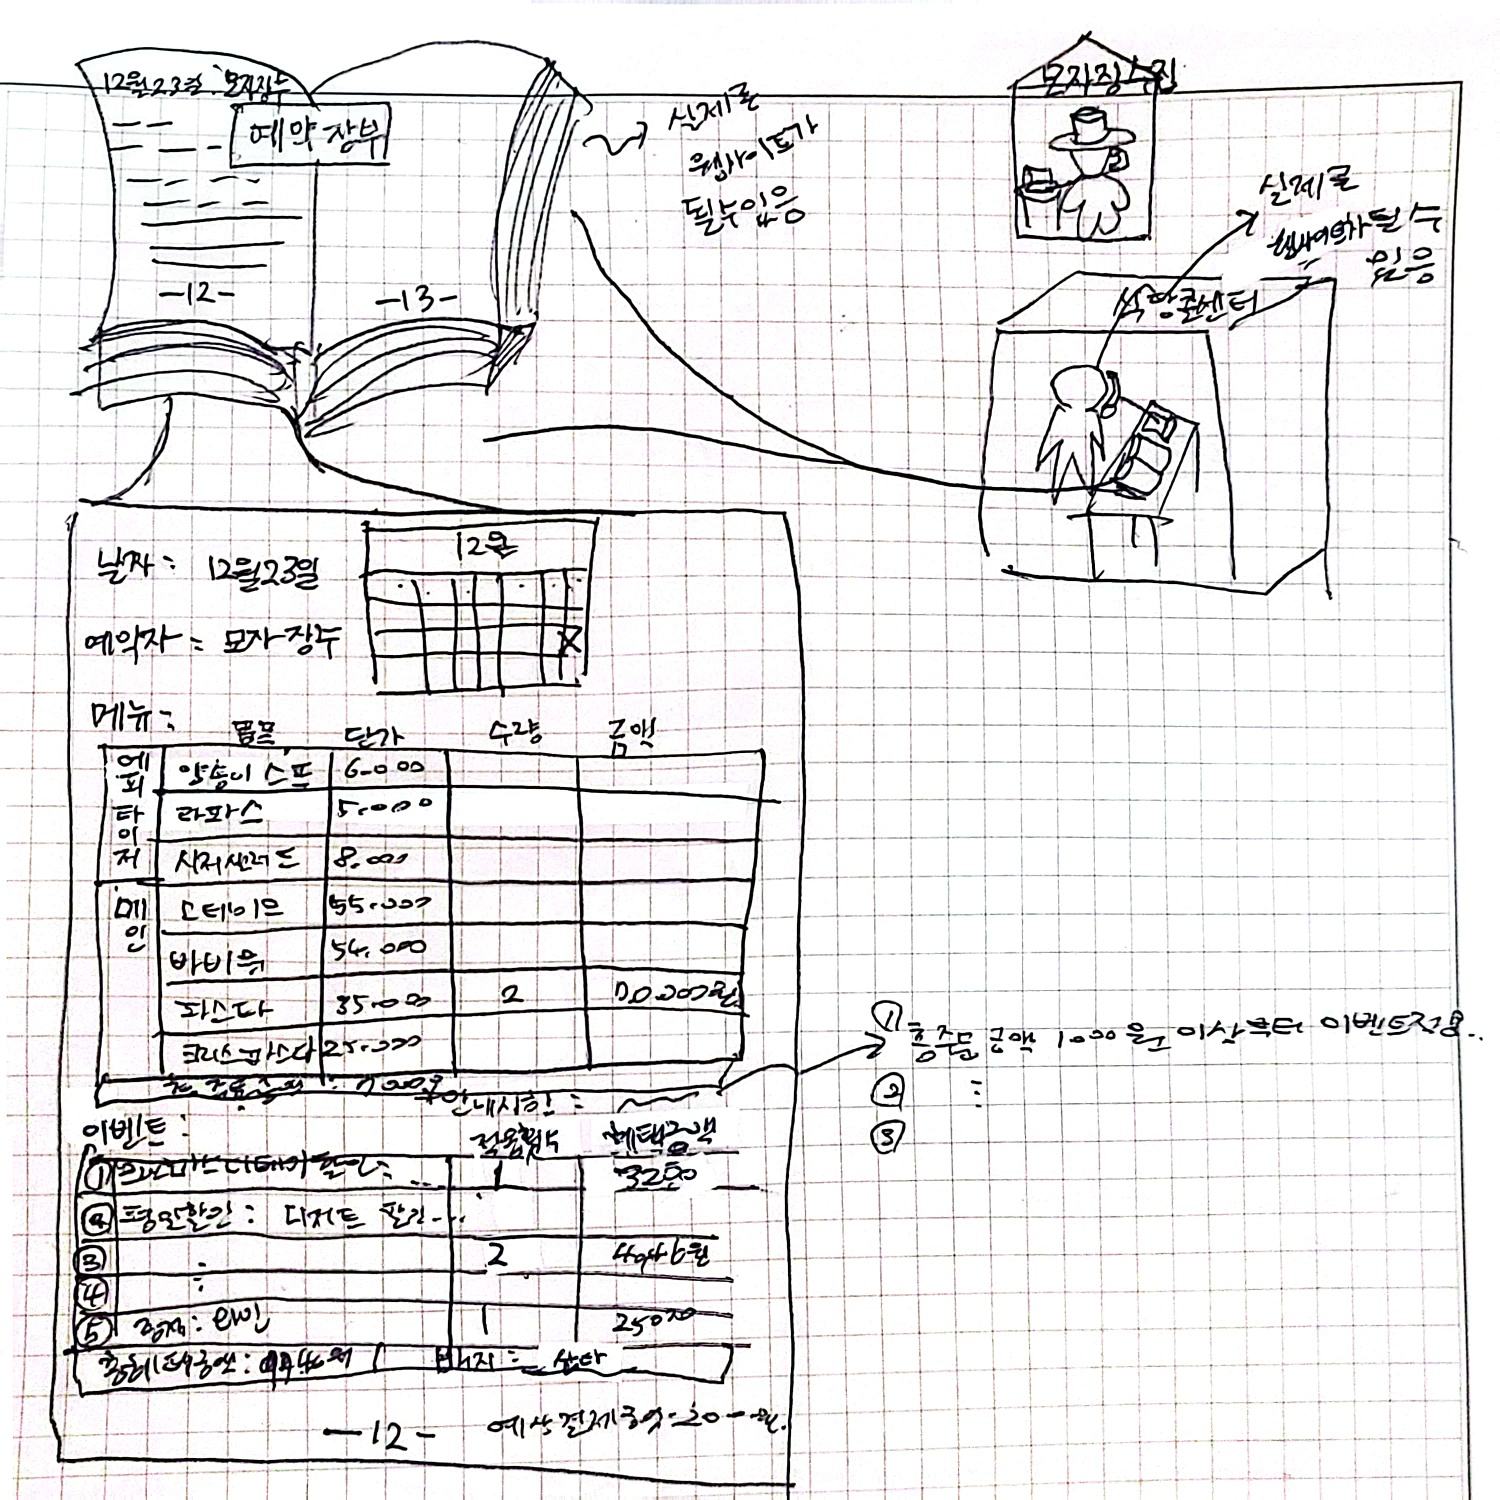 12월23일: 모자장수
예약 장부
-12-
-13-
실제로
웹사이트가
될수있음
모자장수집
실제로
웹사이트가 될 수
있음
식당콜센터
날짜: 12월23일
12월
예약자: 모자장수
X
메뉴:
품목 단가 수량 금액
에피타이저
양송이 스프 6.000
타파스 5.000
시저샐러드 8.000
메인
스테이크 55.000
바비큐 54.000
파스타 35.000 2 70.000원
크리스마스파스타 25.000
안내사항:
① 총주문 금액 10000원 이상부터 이벤트적용..
② :
③
이벤트:
적용횟수 혜택금액
① 크리스마스 디데이 할인: ... 1
② 평일할인: 디저트 할인...
③ : 2
④
⑤ 증정: 와인 1 25000
총혜택금액:
배지: 산타
-12-
예상결제금액